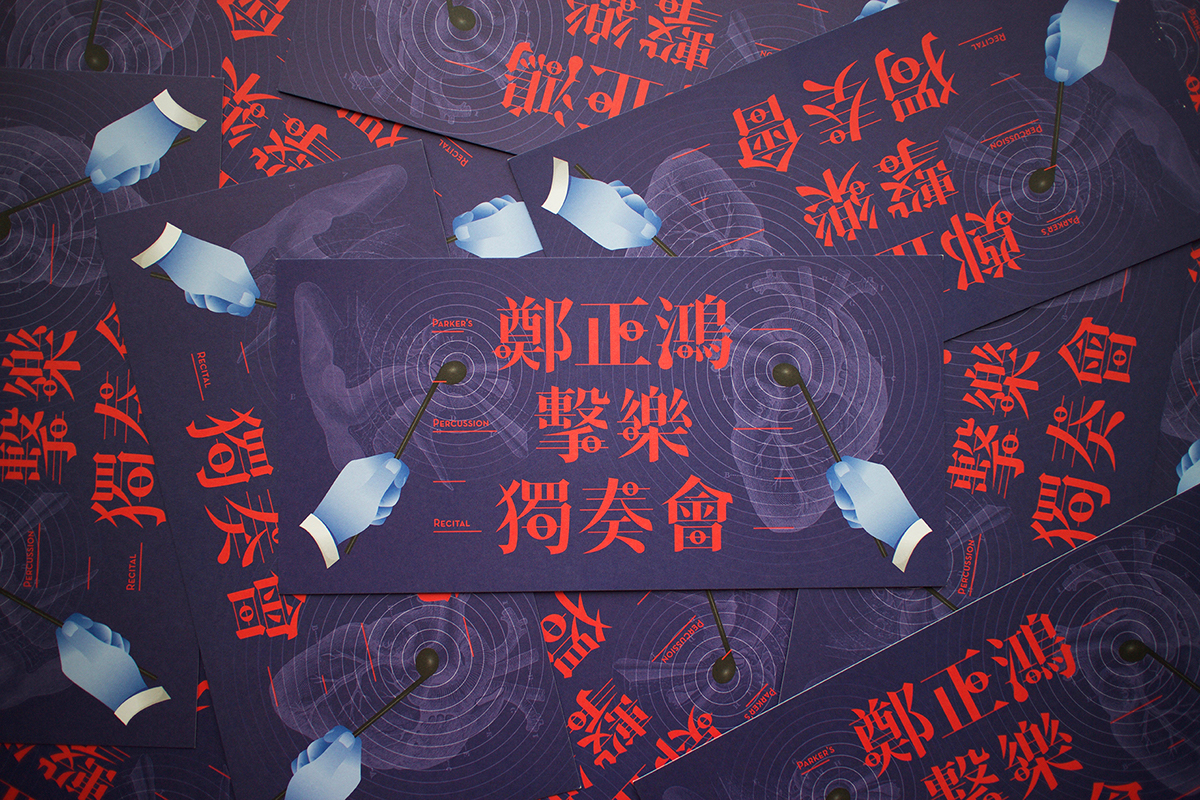 PARKER'S
鄭正鴻
PERCUSSION
擊樂
RECITAL
獨奏會